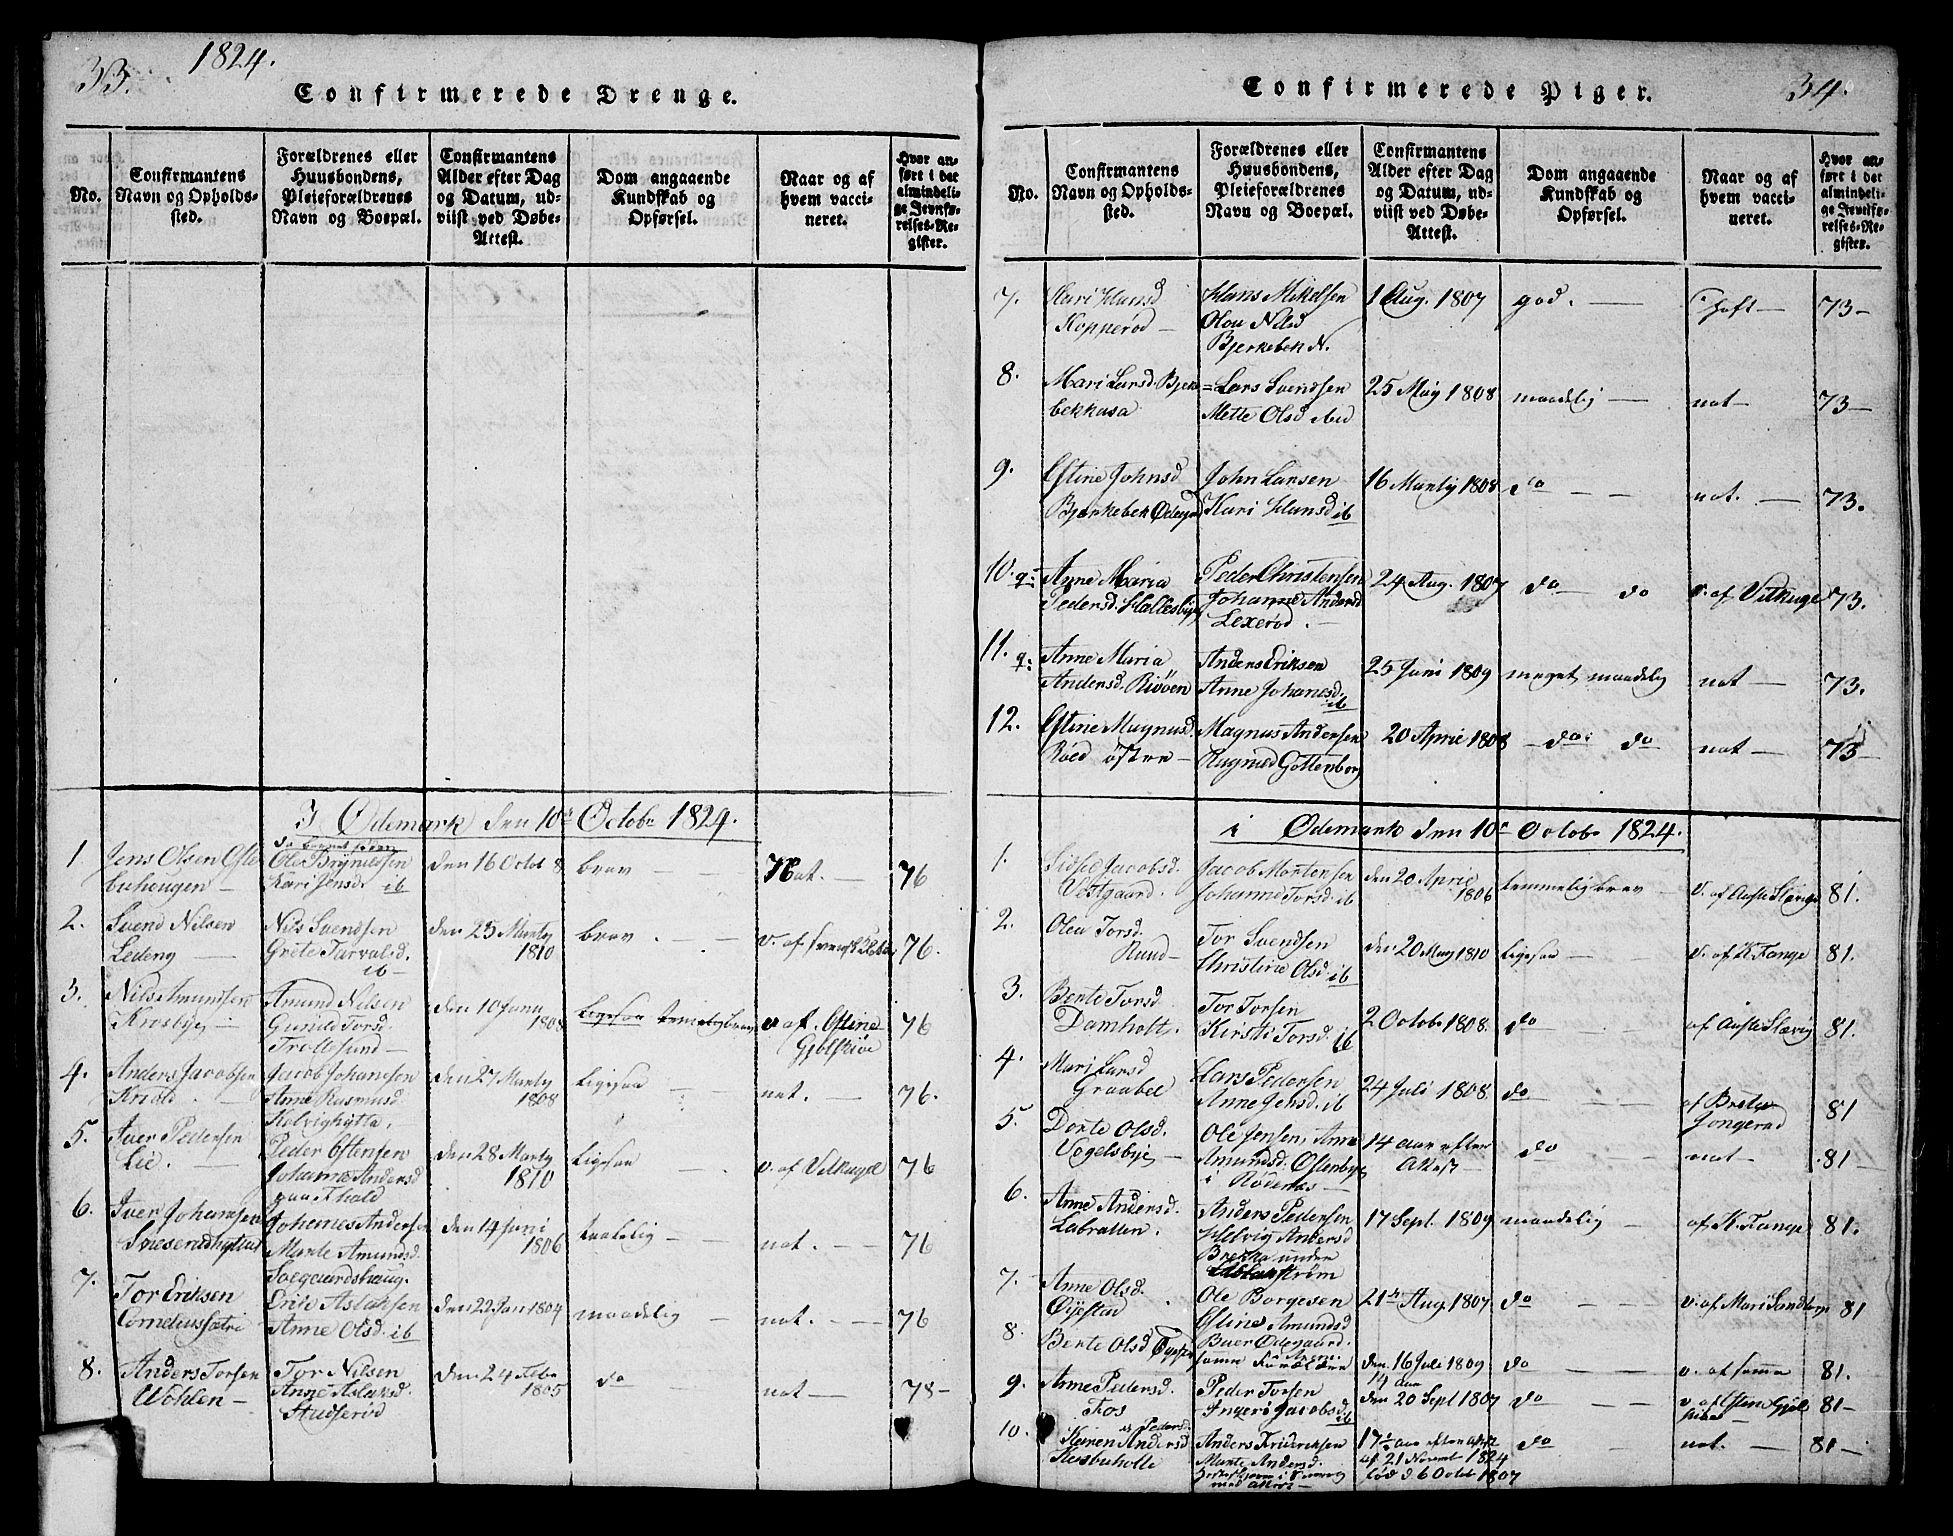 33.
1824.
Confirmerede Drenge.
No.
Confirmantens
Navn og Opholds-
sted.
Forældrenes eller
Huusbondens,
Pleieforældrenes
Navn og Boepæl.
Confirmantens
Alder efter Dag
og Datum, ud-
viist ved Døbe-
Attest.
Dom angaaende
Kundskab og
Opførsel.
Naar og af
hvem vacci-
neret.
Hvor an-
ført i det
almindeli-
ge Jevnfø-
relses-Re-
gister.
Ødemark den 10de Octobr 1824.
1
Jens Olsen
Ole Brynildsen
Kari Jensd. ib
den 16 Octob 8
brav
nat.
76
2.
Svend Nilsen
Ledeng
Nils Svendsen
Grete Tarvalsd.
ib
den 25 Marty
1810
brav.
v. af
76.
3.
Nils Amundsen
Krosbye
Amund Nilsen
Gunild Torsd.
Trollesund
den 10 Janu
1808
ligesaa temelig brav
v af Estine
Gjølsiøe
76
4.
Anders Jacobsen
Jacob Johansen
Anne Rasmusd
Kolvighytta.
den 27 Marty
1808
ligesaa
nat.
76.
5.
Iver Pedersen
Lie.
Peder Ostensen
Johanne Andersd
den 28 Marty
1810
ligesaa
v. af Vilkugel
76
6.
Iver Johansen
Johannes Andersen
Marte Amundsd.
Soegaardshaug.
den 14 Juni
1806
taalelig
nat.
76
7.
Tor Eriksen
Cornelius sætri
Erik Aslaksen
Anne Olsd. ib
den 22 Jan 1804
maadelig
nat.
76
8.
Anders Torsen
Wohlen
Tor Nilsen
Anne Aslaksd.
Studserød
den 24 Febr
1805
do
nat
78
34.
Confirmerede Piger.
No.
Confirmantens
Navn og Opholds-
sted.
Forældrenes eller
Huusbondens,
Pleieforældrenes
Navn og Boepæl.
Confirmantens
Alder efter Dag
og Datum, ud-
viist ved Døbe-
Attest.
Dom angaaende
Kundskab og
Opførsel.
Naar og af
hvem vacci-
neret.
Hvor an-
ført i det
almindeli-
ge Jevnfø-
relses-Re-
gister.
7.
Kari Hansd
Kopperød
Hans Mikelsen
Olou Nilsd
Bjerkebek N.
1 Aug. 1807
god.
73
8.
Mari Larsd. Bjerke
bekkasa
Lars Svendsen
Mette Olsd ibid
25 May 1808
maadelig
nat
73
9.
Estine Johnsd
Bjerkebek Ødegrd
John Larsen
Kari Hansd ib
16 Marty 1808
do
nat.
73.
10.
Anne Maria
Pedersd. Hallesbye
Peder Christensen
Johanne Andersd
Lexerød.
24 Aug. 1807
do do
v. af Vilkugel
73.
11.
Anne Maria
Andersd. Riiøen
Anders Eriksen
Anne Johanesd.
ib
25 Juni 1809
meget maadelig
nat
73.
12.
Estine Magnusd.
Røed østre
Magnus Andersen
Ragnild Gottenborg
20 April 1808
do do
nat
73
i Ødemark den 10de Octobr 1824.
1.
Sidsel Jacobsd.
Vestgaard.
Jacob Mortensen
Johanne Torsd. ib
den 20 April
1806
temmelig brav
v. af
81.
2.
Olea Torsd.
Ruud
Tor Svendsen
Christine Olsd ib
den 20 May 1810
ligesaa
v. af K. Tange
81.
3.
Berte Torsd.
Damholt.
Tor Torsen
Kirsti Torsd. ib
2 Octobr 1808.
do
81.
4.
Mari Larsd
Graabøl
Lars Pedersen
Anne Jensd. ib
24 Juli 1808.
do
81
5.
Dorte Olsd.
Vogelsbye
Ole Jensen, Anne
Amundsd. Østenbye
i Rødenæs
14 aar efter
Attest
do
nat
81
6.
Anne Andersd.
Labratten.
Anders Pedersen
Helvig Andersd
Brekka under
17 Sept. 1809
maadelig
af K. Tange
81.
7.
Anne Olsd.
Øijestad
Ole Borgesen
Estine Amundsd
Buer Ødegaard.
21de Aug 1807.
do
v. af Mari Sandtorp
81
8.
Berte Olsd
samme Forældre
den 16 Juli 1809.
do
v. af samme
81.
9.
Anne Pedersd.
Fos
Peder Torsen
Ingeri Jacobsd.
ib
14 aar
den 20 Sept 1807
do
81
10.
Karen Andersd
Anders Fridriksen
Marte Andersd.
af 21 Novembr 1824
fød d 6 Octob 1807
do
nat.
81